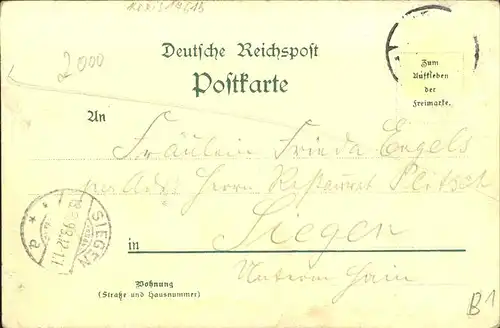 2000
Deutsche Reichspost
Postkarte
Zum
Aufkleben
der
Freimarke.
An
Fräulein Frieda Engels
per Adr. Herrn Restaurat Plitsch
in Siegen
Unterm Hain
SIEGEN
Wohnung
(Straße und Hausnummer)
B1